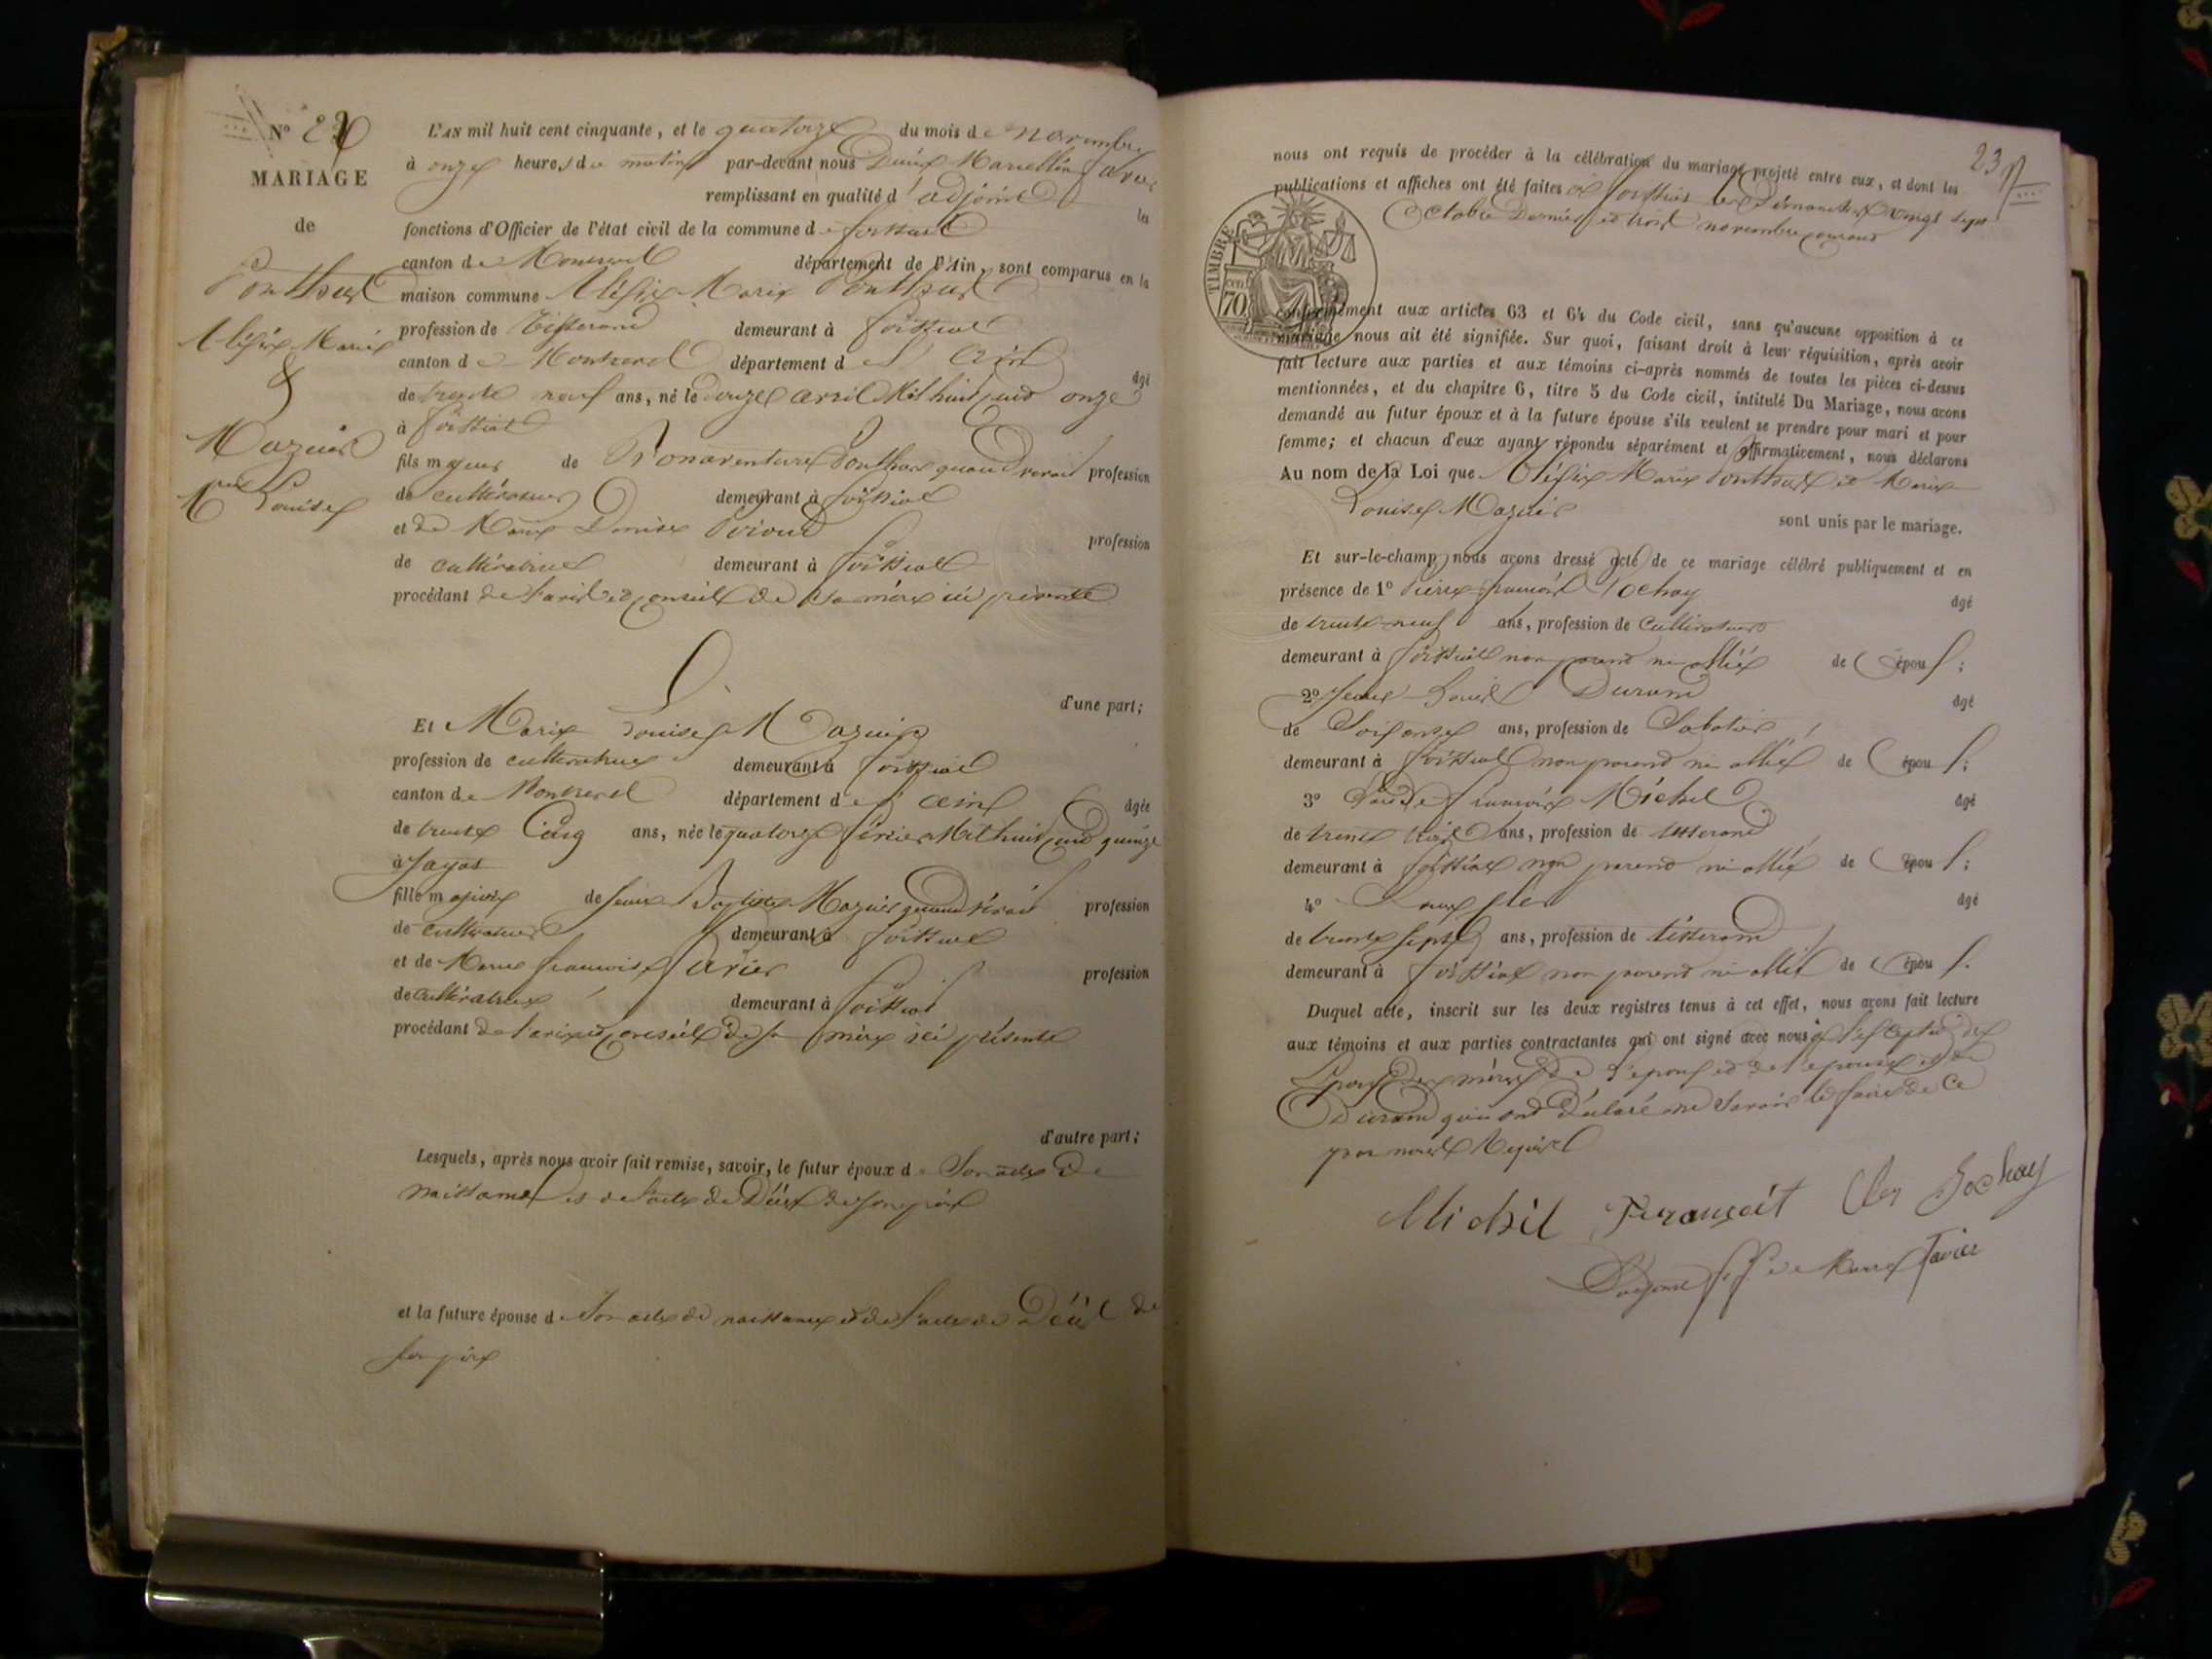 N° 22
MARIAGE
de
Ponthus
Alexis Marie
&
Mazuir
Mie Louise
L'AN mil huit cent cinquante, et le quatorze du mois de novembre
à onze heures du matin par-devant nous Denis Marcellin favier
remplissant en qualité d'adjoint les
fonctions d'Officier de l'état civil de la commune de foissiat
canton de Montrevel département de l'Ain, sont comparus en la
maison commune Alexis Marie Ponthus
profession de tisserand demeurant à foissiat
canton de Montrevel département de l'Ain âgé
de trente neuf ans, né le douze avril Mil huit cent onze
à foissiat
fils majeur de Bonaventure Ponthus quand vivait profession
de cultivateur demeurant à foissiat
et de Marie Denise profession
de cultivatrice demeurant à foissiat
procédant de l'avis et conseil de sa mère ici présente
d'une part;
Et Marie Louise Mazuir
profession de cultivatrice demeurant à foissiat
canton de Montrevel département de l'ain âgée
de trente cinq ans, née le quatorze février Mil huit cent quinze
à Jayat
fille majeure de Jean Baptiste Mazuir quand vivait profession
de cultivateur demeurant à foissiat
et de Marie françoise favier profession
de cultivatrice demeurant à foissiat
procédant de l'avis et conseil de sa mère ici présente
d'autre part;
Lesquels, après nous avoir fait remise, savoir, le futur époux de Son acte de
naissance et de l'acte de Décès de son père
et la future épouse de Son acte de naissance et de l'acte de Décès de
son père
23
nous ont requis de procéder à la célébration du mariage projeté entre eux, et dont les
publications et affiches ont été faites à foissiat les Dimanches vingt sept
Octobre Dernier et trois novembre courant
TIMBRE
70
conformément aux articles 63 et 64 du Code civil, sans qu'aucune opposition à ce
mariage nous ait été signifiée. Sur quoi, faisant droit à leur réquisition, après avoir
fait lecture aux parties et aux témoins ci-après nommés de toutes les pièces ci-dessus
mentionnées, et du chapitre 6, titre 5 du Code civil, intitulé Du Mariage, nous avons
demandé au futur époux et à la future épouse s'ils veulent se prendre pour mari et pour
femme; et chacun d'eux ayant répondu séparément et affirmativement, nous déclarons
Au nom de la Loi que Alexis Marie Ponthus et Marie
Louise Mazuir
sont unis par le mariage.
Et sur-le-champ nous avons dressé acte de ce mariage célébré publiquement et en
présence de 1° Pierre françois Bochay âgé
de trente-neuf ans, profession de Cultivateur
demeurant à foissiat non parent ni allié de Epoux;
2° Jean Louis Durand âgé
de Soixante ans, profession de Sabotier
demeurant à foissiat non parent ni allié de époux;
3° Claude françois Michel âgé
de trente trois ans, profession de tisserand
demeurant à foissiat non parent ni allié de époux;
4° âgé
de trente sept ans, profession de tisserand
demeurant à foissiat non parent ni allié de époux.
Duquel acte, inscrit sur les deux registres tenus à cet effet, nous avons fait lecture
aux témoins et aux parties contractantes qui ont signé avec nous à l'exception des
Epoux des mères de l'époux et de l'épouse et de
Durand qui ont déclaré ne savoir le faire de ce
par nous Requis
Michel François Bochay
favier